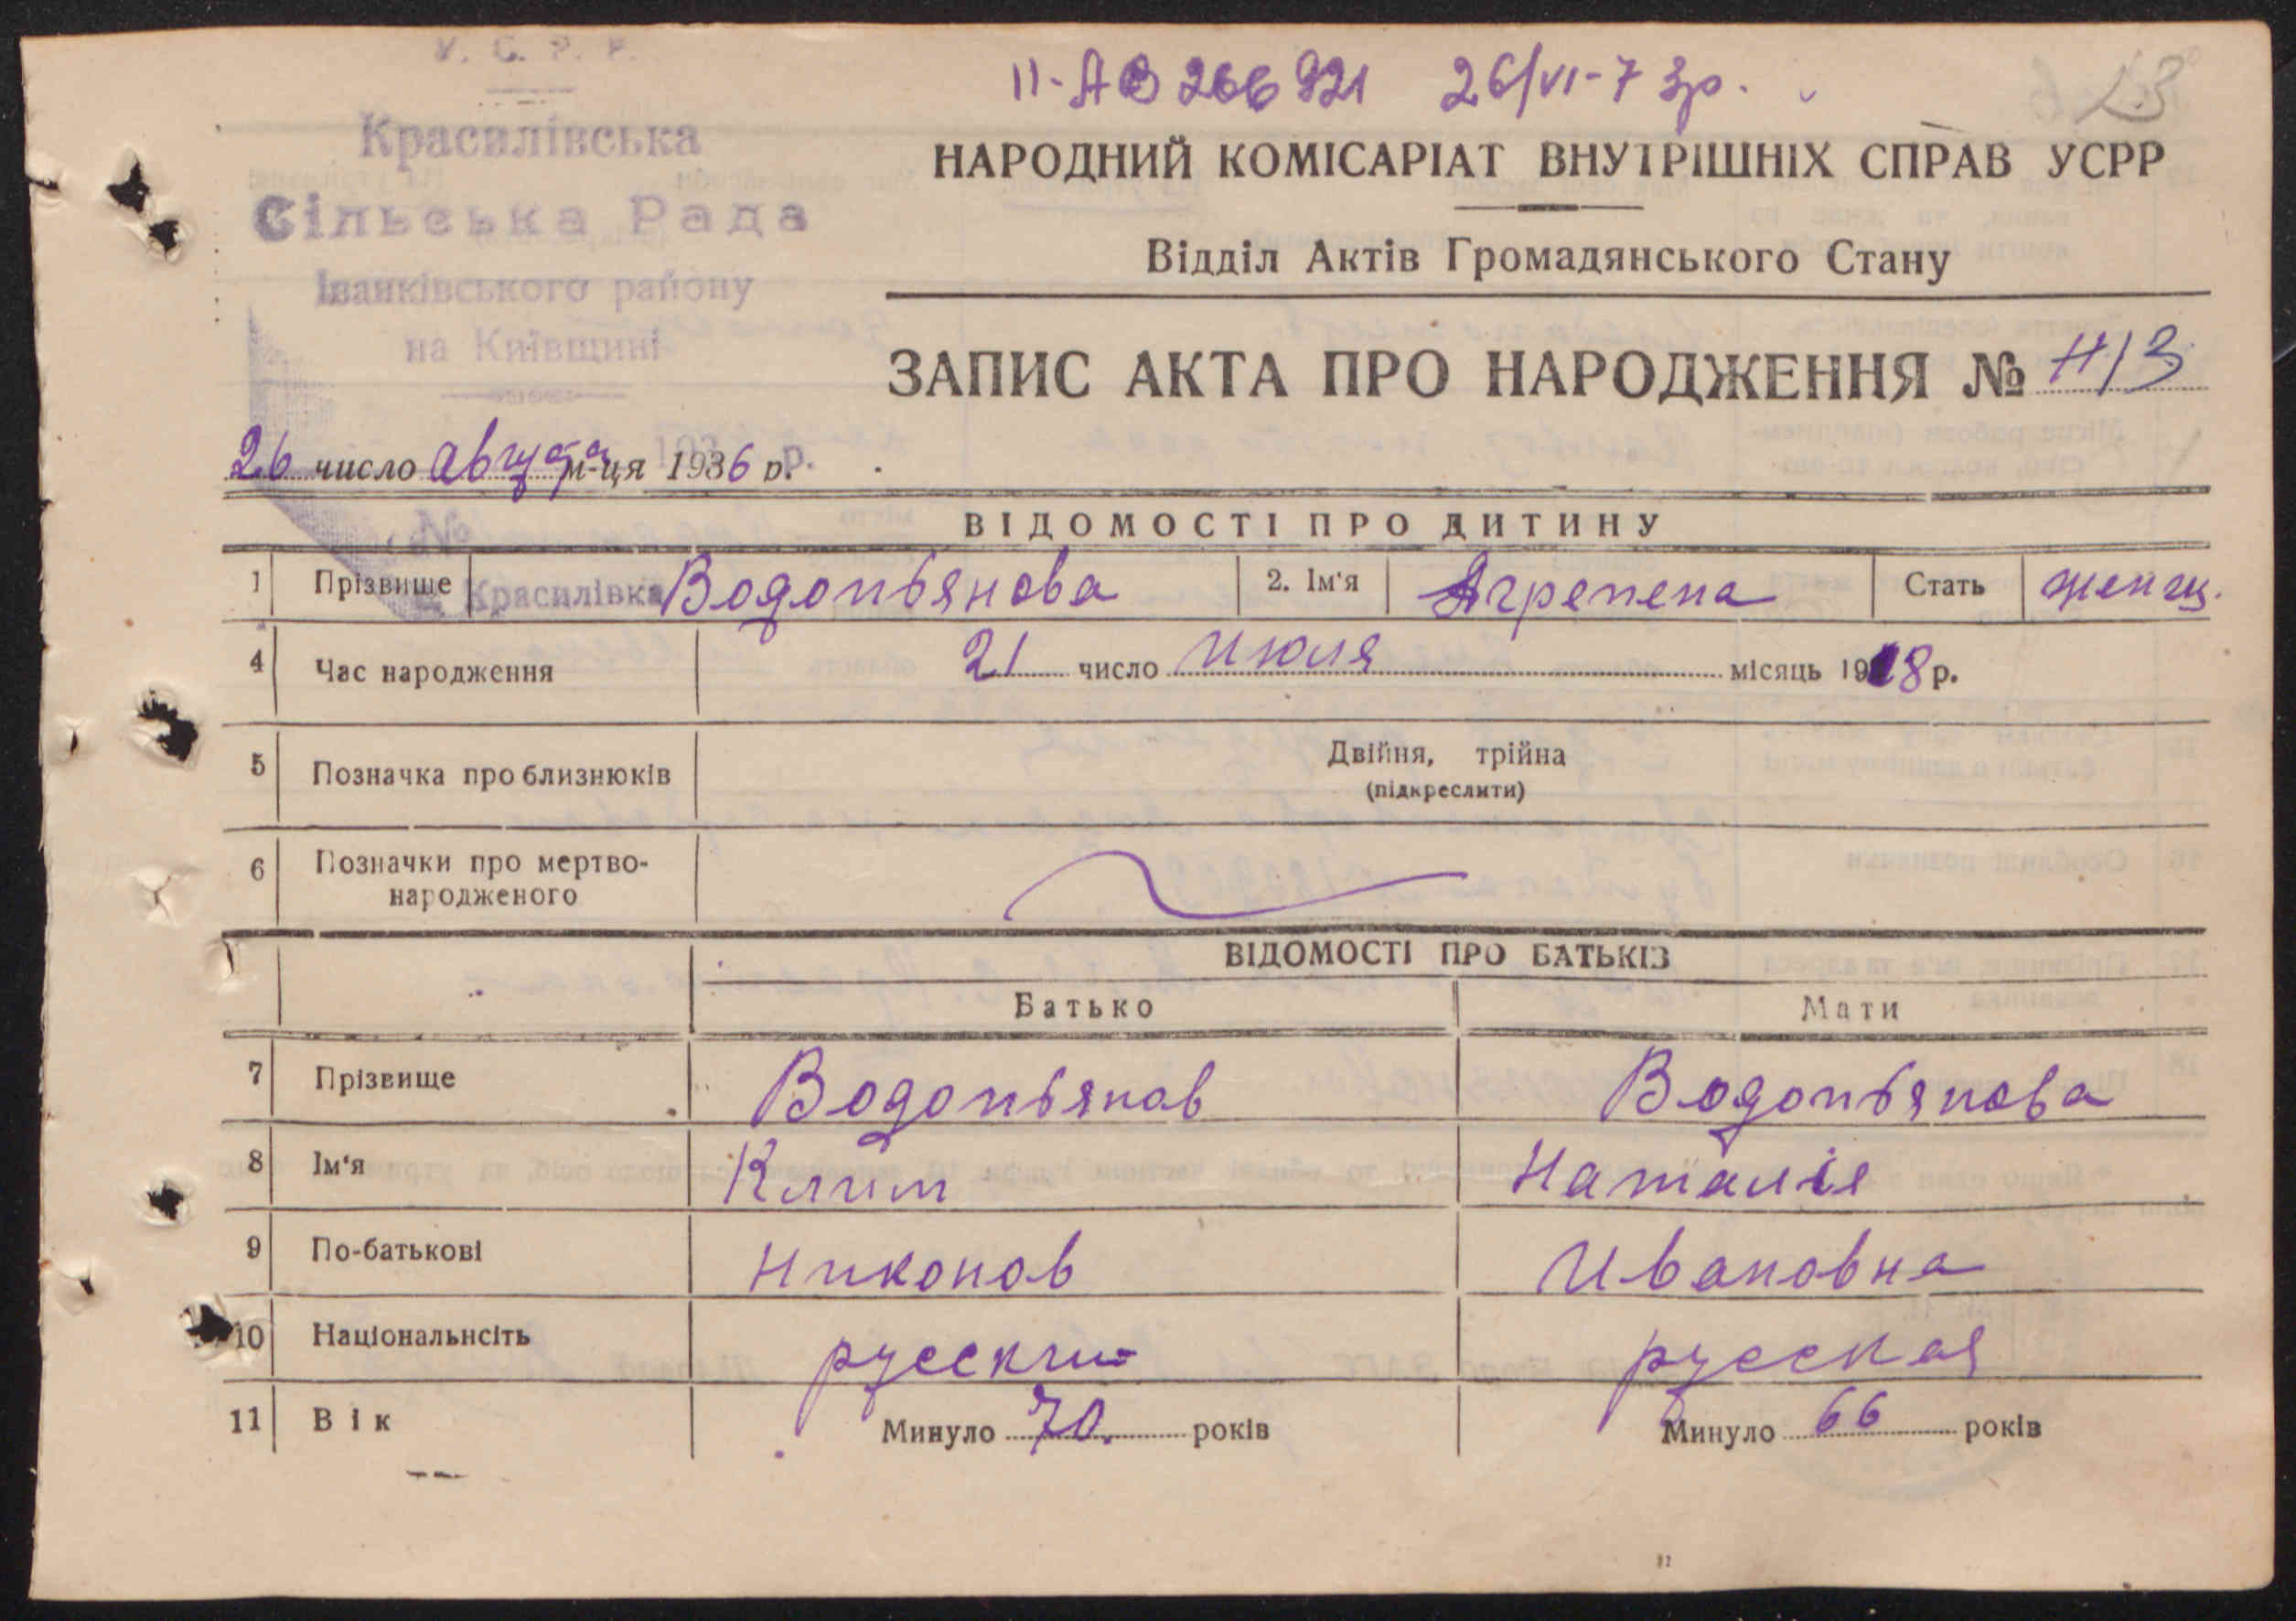 У. С. Р. Р.
Красилівська
Сільська Рада
Іванківського району
на Київщині
193 р.
№
с. Красилівка
II-АВ 266921 26/VI-73р.
НАРОДНИЙ КОМІСАРІАТ ВНУТРІШНІХ СПРАВ УСРР
Відділ Актів Громадянського Стану
ЗАПИС АКТА ПРО НАРОДЖЕННЯ №
26 число августа м-ця 1936 р.
ВІДОМОСТІ ПРО ДИТИНУ
1 Прізвище Водопьянова 2. Ім'я Агрепена Стать женщ.
4 Час народження 21 число Июля місяць 1918 р.
5 Позначка про близнюків Двійня, трійна
(підкреслити)
6 Позначки про мертво-
народженого
ВІДОМОСТІ ПРО БАТЬКІВ
Батько Мати
7 Прізвище Водопьянов Водопьянова
8 Ім'я Клим Наталія
9 По-батькові Никонов Ивановна
10 Національнсіть русский русская
11 Вік Минуло 70. років Минуло 66 років